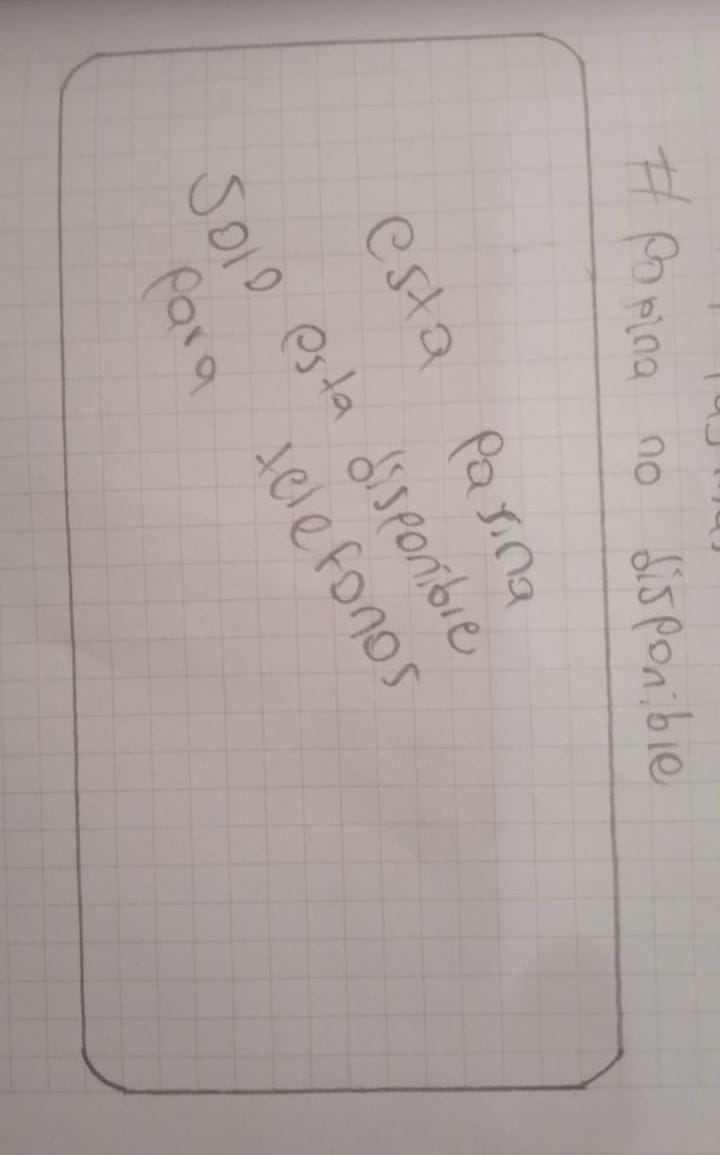 # Pagina no disponible
esta pagina
Solo esta disponible
para telefonos